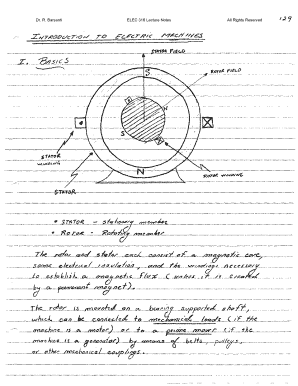 Dr. R. Barsanti ELEC 316 Lecture Notes All Rights Reserved 129
INTRODUCTION TO ELECTRIC MACHINES
I. BASICS
STATOR FIELD
ROTOR FIELD
S
N
S
N
STATOR WINDING
ROTOR WINDING
STATOR
* STATOR - stationary member
* ROTOR - Rotating member
The rotor and stator each consist of a magnetic core,
some electrical insulation, and the windings necessary
to establish a magnetic flux (unless it is created
by a permanent magnet).
The rotor is mounted on a bearing supported shaft,
which can be connected to mechanical loads (if the
machine is a motor) or to a prime mover (if the
machine is a generator) by means of belts, pulleys,
or other mechanical couplings.